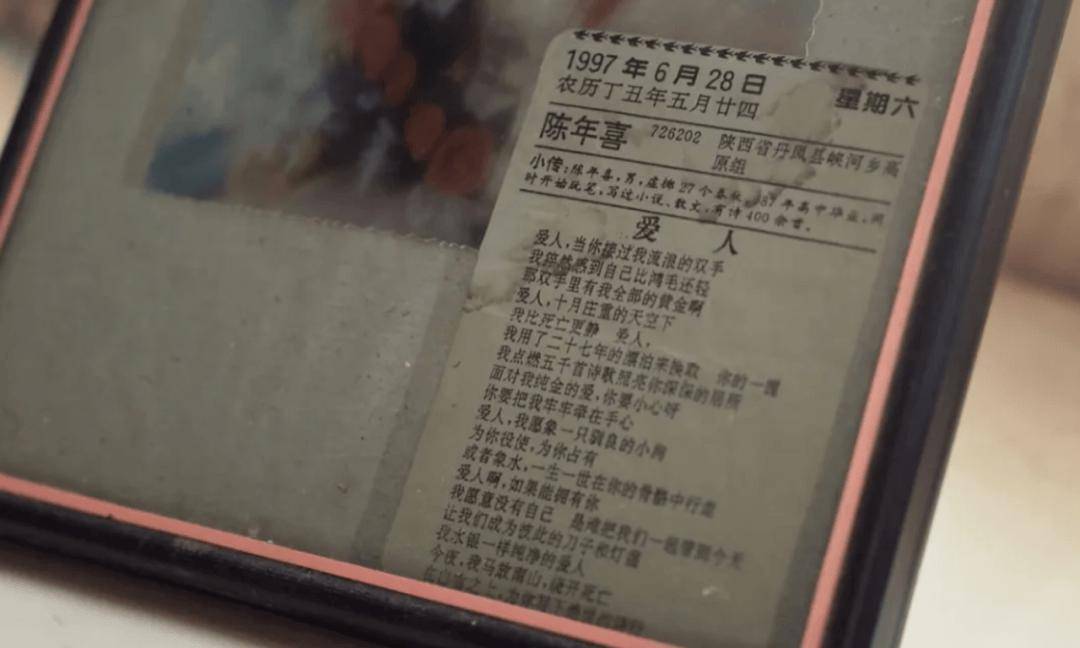 1997年6月28日 星期六
农历丁丑年五月廿四
陈年喜 726202 陕西省丹凤县峡河乡高
原组
小传:陈年喜,男,虚掷27个春秋,987年高中毕业,同
时开始玩笔,写过小说、散文,有诗400余首。
爱 人
爱人,当你接过我流浪的双手
我猛然感到自己比鸿毛还轻
那双手里有我全部的黄金啊
爱人,十月庄重的天空下
我比死亡更静 爱人,
我用了二十七年的惧怕来换取 你的一
我点燃五千首诗歌照亮你深深的居所
面对我纯金的爱,你要小心呀
你要把我牢牢牵在手心
爱人,我愿象一只驯良的小狗
为你役使,为你占有
或者象水,一生一世在你的骨骼中行走
爱人啊,如果能拥有你
我愿意没有自己 是谁把我们一起带到今天
让我们成为彼此的刀子和灯盏
我水银一样纯净的爱人
今夜,我马放南山,绕开死亡
在白 之上,为你写下